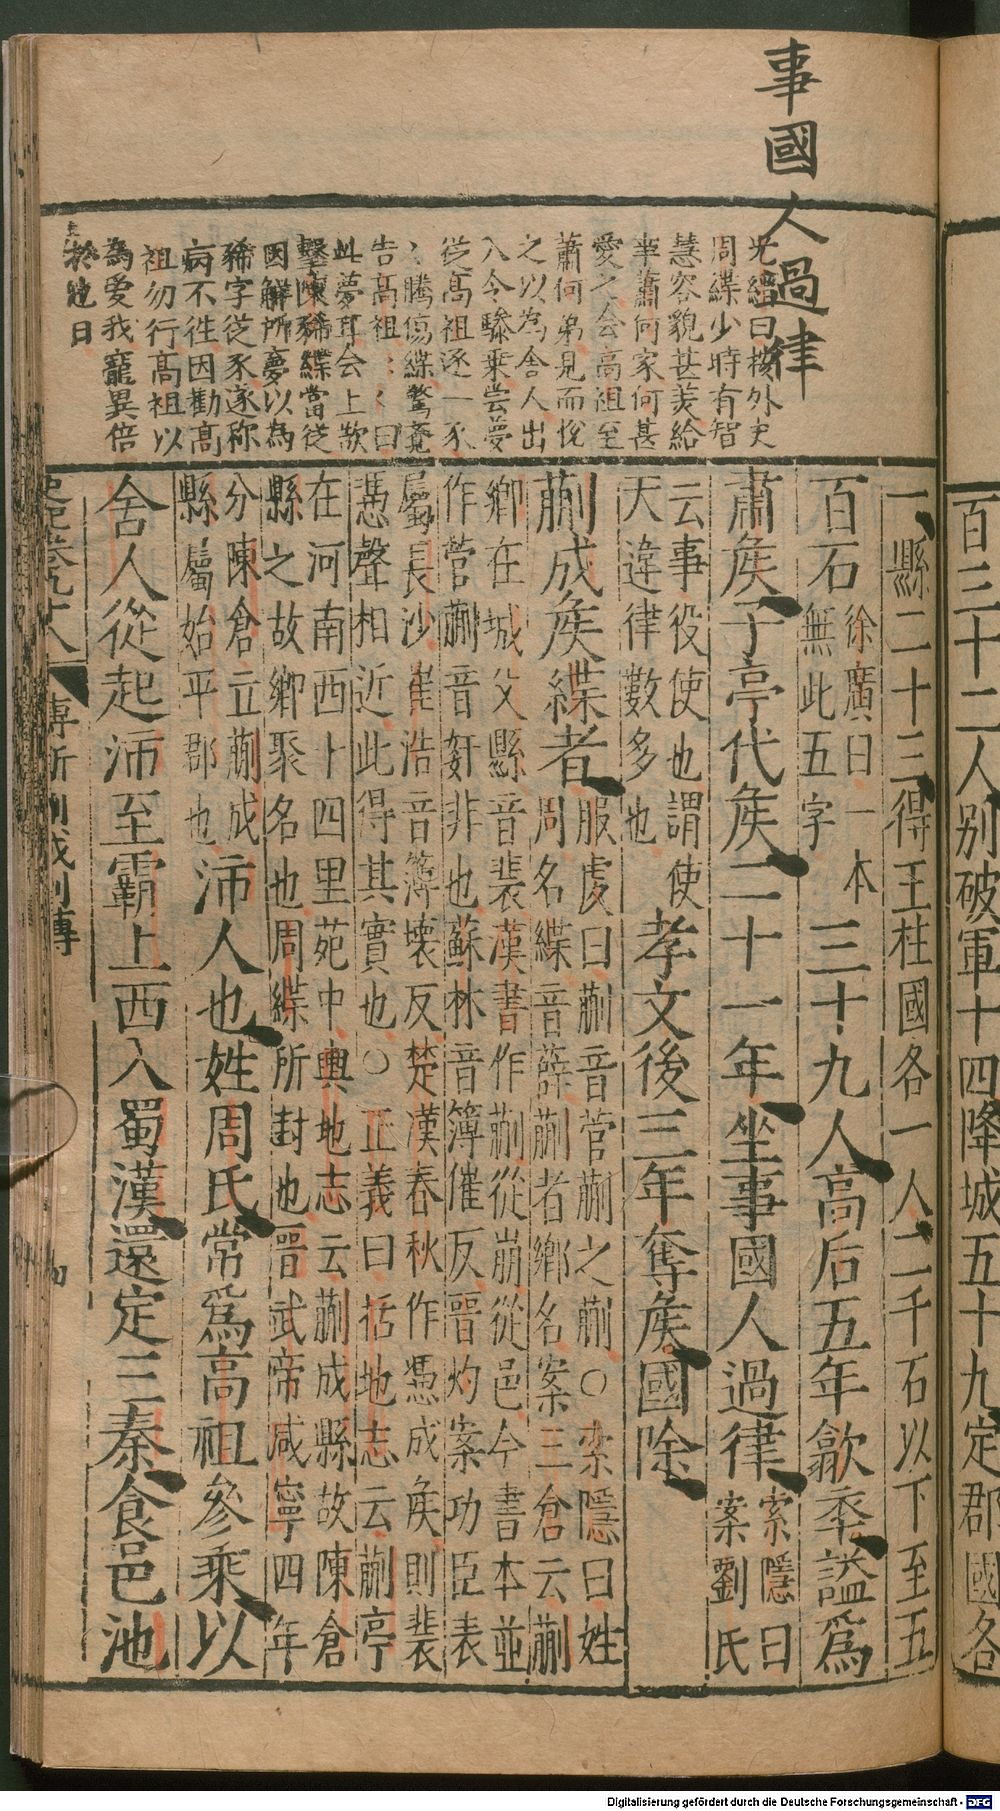 事國人過律
光縉曰按外史
周緤少時有智
慧容貌甚美給
事蕭何家何甚
愛之會高祖至
蕭何弟見而悅
之以為舍人出
入令驂乗嘗夢
從高祖逐一豕
豕騰傷緤驚寤
告高祖高祖曰
此夢耳會上欲
擊陳豨緤當從
因解所夢以為
豨字從豕遂称
病不徃因勸高
祖勿行髙祖以
為愛我寵異倍
於他日
百三十二人别破軍十四降城五十九定郡國各
一縣二十三得王柱國各一人二千石以下至五
百石徐廣曰一本無此五字三十九人高后五年歙卒謚爲
肅矦子亭代矦二十一年坐事國人過律索隱曰案劉氏
云事役使也謂使天違律數多也孝文後三年奪矦國除
蒯成矦緤者服虔曰蒯音菅蒯之蒯○索隱曰姓周名緤音薛蒯者鄉名案三倉云蒯
鄉在城父縣音裴漢書作蒯從崩從邑今書本並作菅蒯音奸非也蘇林音簿催反晉灼案功臣表
屬長沙崔浩音簿壊反楚漢春秋作憑成矦則裴憑聲相近此得其實也○正義曰括地志云蒯亭
在河南西十四里苑中輿地志云蒯成縣故陳倉縣之故鄉聚名也周緤所封也晉武帝咸寧四年
分陳倉立蒯成縣屬始平郡也沛人也姓周氏常爲高祖參乘以
舍人從起沛至霸上西入蜀漢還定三秦食邑池
史記卷九十八 傳斬蒯成列傳 四
Digitalisierung gefördert durch die Deutsche Forschungsgemeinschaft - DFG